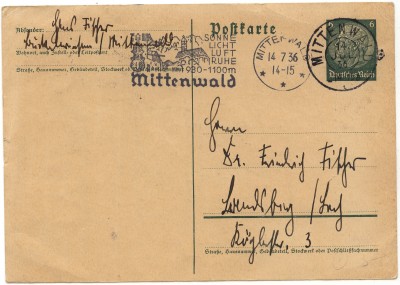 Absender: Hans Fischer
Mittenwald
Wohnort, auch Zustell- oder Leitpostamt
Straße, Hausnummer, Gebäudeteil, Stockwerk oder Postschließfachnummer
SONNE
LICHT
LUFT
RUHE
930-1100m
Mittenwald
Postkarte
MITTENWALD
14.7.36
14-15
MITTENW
6
6
Deutsches Reich
Herrn
Dr. Friedrich Fischer
Landsberg / Lech
3
Straße, Hausnummer, Gebäudeteil, Stockwerk oder Postschließfachnummer